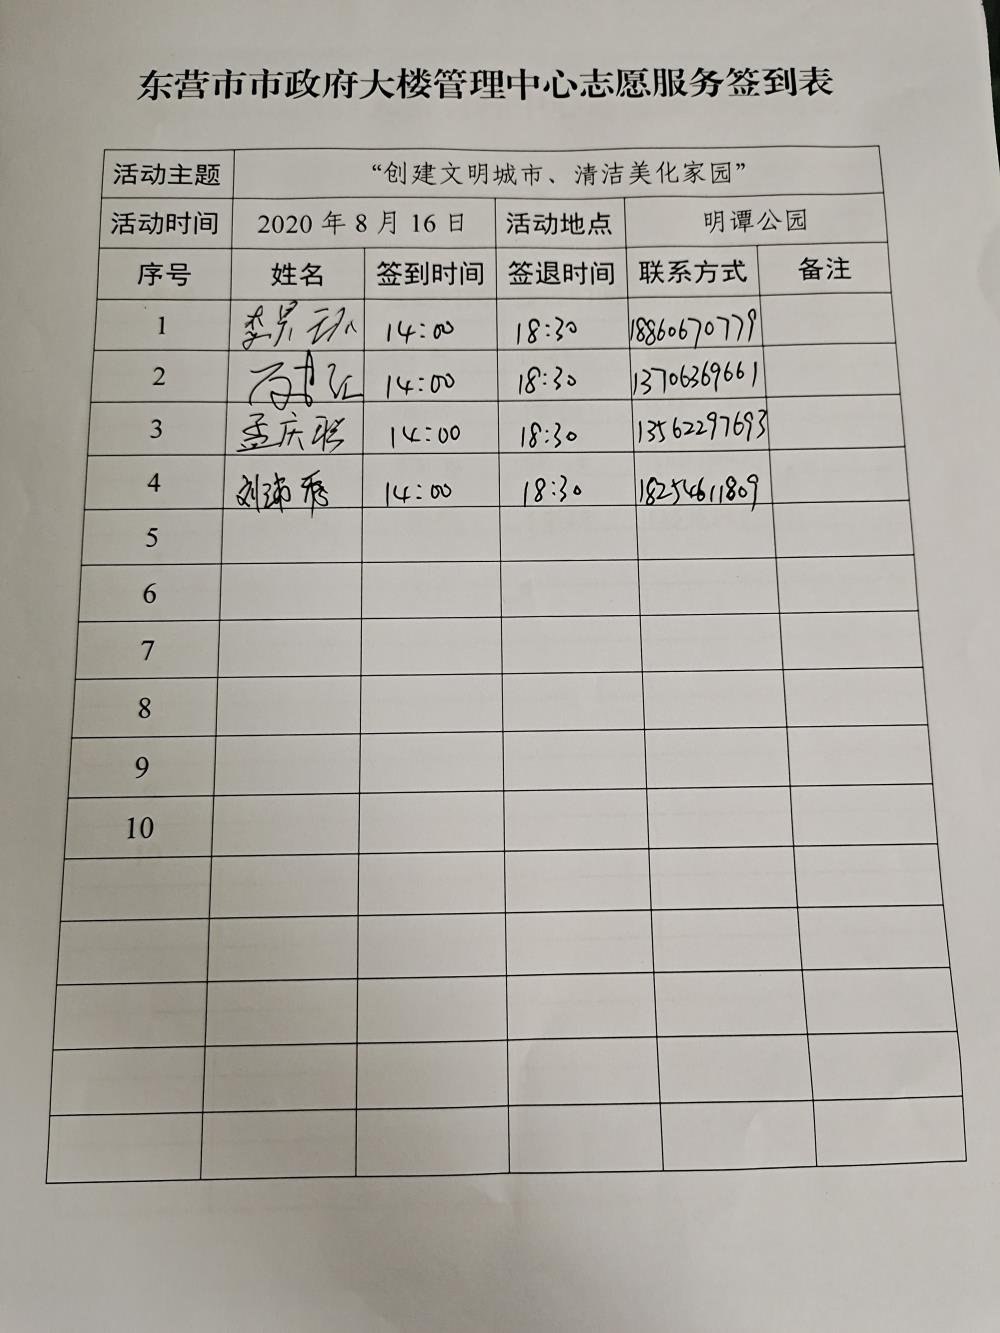 东营市市政府大楼管理中心志愿服务签到表
活动主题 “创建文明城市、清洁美化家园”
活动时间 2020 年 8 月 16 日 活动地点 明谭公园
序号 姓名 签到时间 签退时间 联系方式 备注
1 14:00 18:30 18860670779
2 14:00 18:30 13706369661
3 孟庆联 14:00 18:30 13562297693
4 14:00 18:30 18254611809
5
6
7
8
9
10